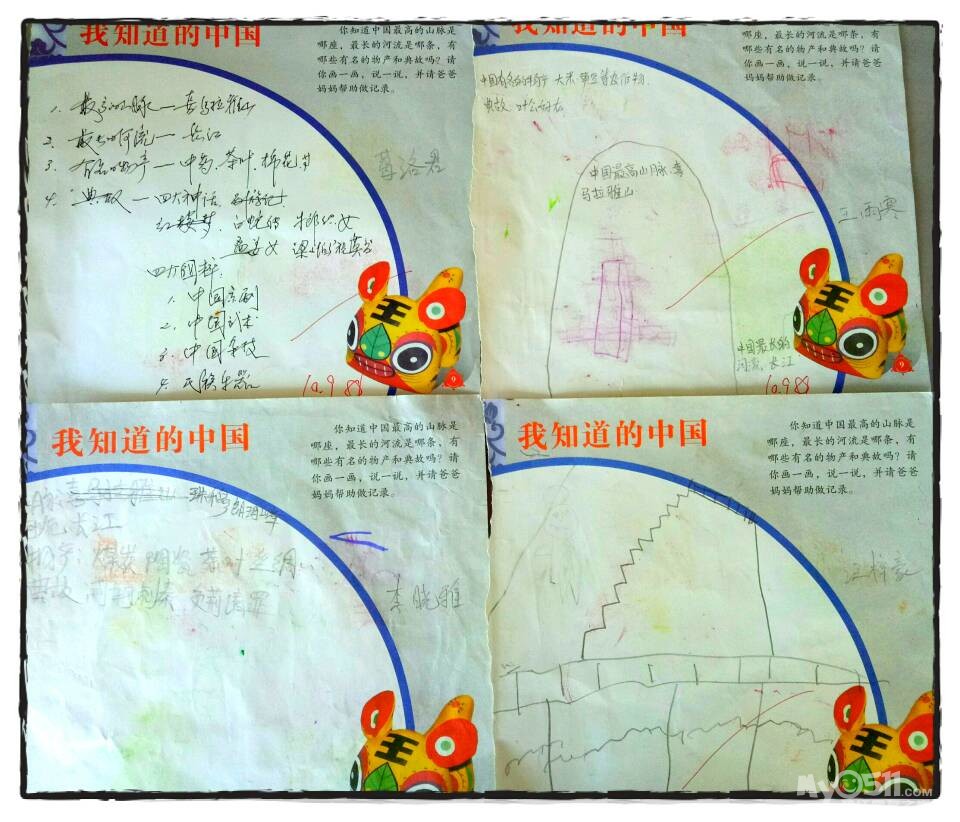 我知道的中国
你知道中国最高的山脉是
哪座，最长的河流是哪条，有
哪些有名的物产和典故吗？请
你画一画，说一说，并请爸爸
妈妈帮助做记录。
1. 最高的山脉—喜马拉雅山
2. 最长的河流—长江
3. 有名的物产—中药、茶叶、棉花
4. 典故—四大神话、西游记
红楼梦、白蛇传
孟姜女 梁山伯祝英台
四大国粹:
1. 中国京剧
2. 中国武术
3. 中国杂技
4. 民族乐器
洛君
王
9
10.9
我知道的中国
你知道中国最高的山脉是
哪座，最长的河流是哪条，有
哪些有名的物产和典故吗？请
你画一画，说一说，并请爸爸
妈妈帮助做记录。
中国有名的物产 大米
典故 叶公好龙
中国最高山脉、喜
马拉雅山
王雨寒
中国最长的
河流、长江
王
9
10.9
我知道的中国
你知道中国最高的山脉是
哪座，最长的河流是哪条，有
哪些有名的物产和典故吗？请
你画一画，说一说，并请爸爸
妈妈帮助做记录。
珠穆朗玛峰
长江
物产：煤炭 陶瓷 茶叶 丝绸
典故 负荆请罪
李晓雅
王
我知道的中国
你知道中国最高的山脉是
哪座，最长的河流是哪条，有
哪些有名的物产和典故吗？请
你画一画，说一说，并请爸爸
妈妈帮助做记录。
王
My0511.COM